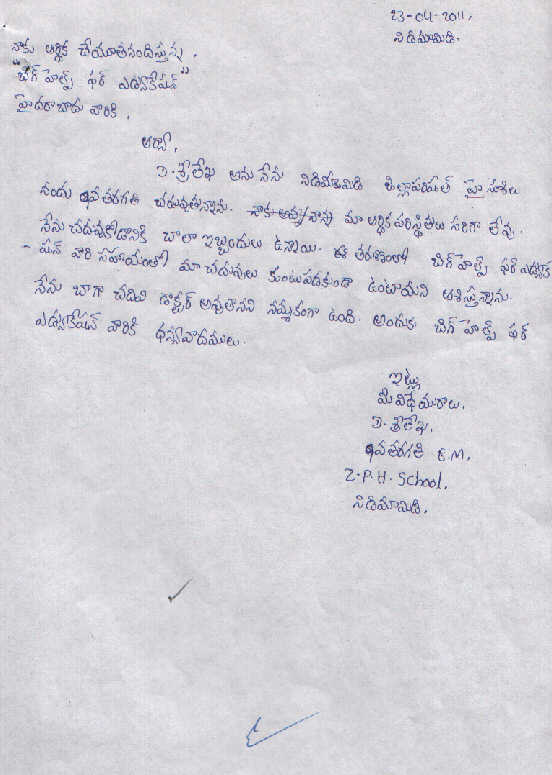 23-04-2011,
నిడిమామిడి.
నాకు ఆర్థిక చేయూతనందిస్తున్న,
"బిగ్ హెల్ప్ ఫర్ ఎడ్యుకేషన్"
హైదరాబాదు వారికి,
ఆర్యా,
D. శ్రీలేఖ అను నేను నిడిమామిడి జిల్లాపరిషత్ హైస్కూలు
నందు 9వ తరగతి చదువుతున్నాను. నాకు అమ్మ/నాన్న మా ఆర్థిక పరిస్థితులు సరిగా లేవు.
నేను చదువుకోడానికి చాలా ఇబ్బందులు ఉన్నాయి. ఈ తరుణంలో బిగ్ హెల్ప్ ఫర్ ఎడ్యుకే
- షన్ వారి సహాయంతో మా చదువులు కుంటుపడకుండా ఉంటాయని ఆశిస్తున్నాను.
నేను బాగా చదివి డాక్టర్ అవ్వాలనని నమ్మకంగా ఉంది. అందుకు బిగ్ హెల్ప్ ఫర్
ఎడ్యుకేషన్ వారికి ధన్యవాదములు.
ఇట్లు
మీ విధేయురాలు,
D. శ్రీలేఖ,
9వ తరగతి E.M,
Z.P.H. School,
నిడిమామిడి.